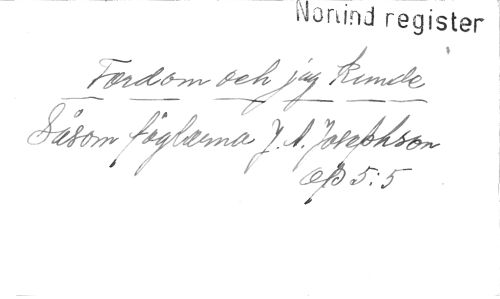 Norlind register
Fordom och jag kunde
Såsom foglarna J. A. Josephson
op 5:5